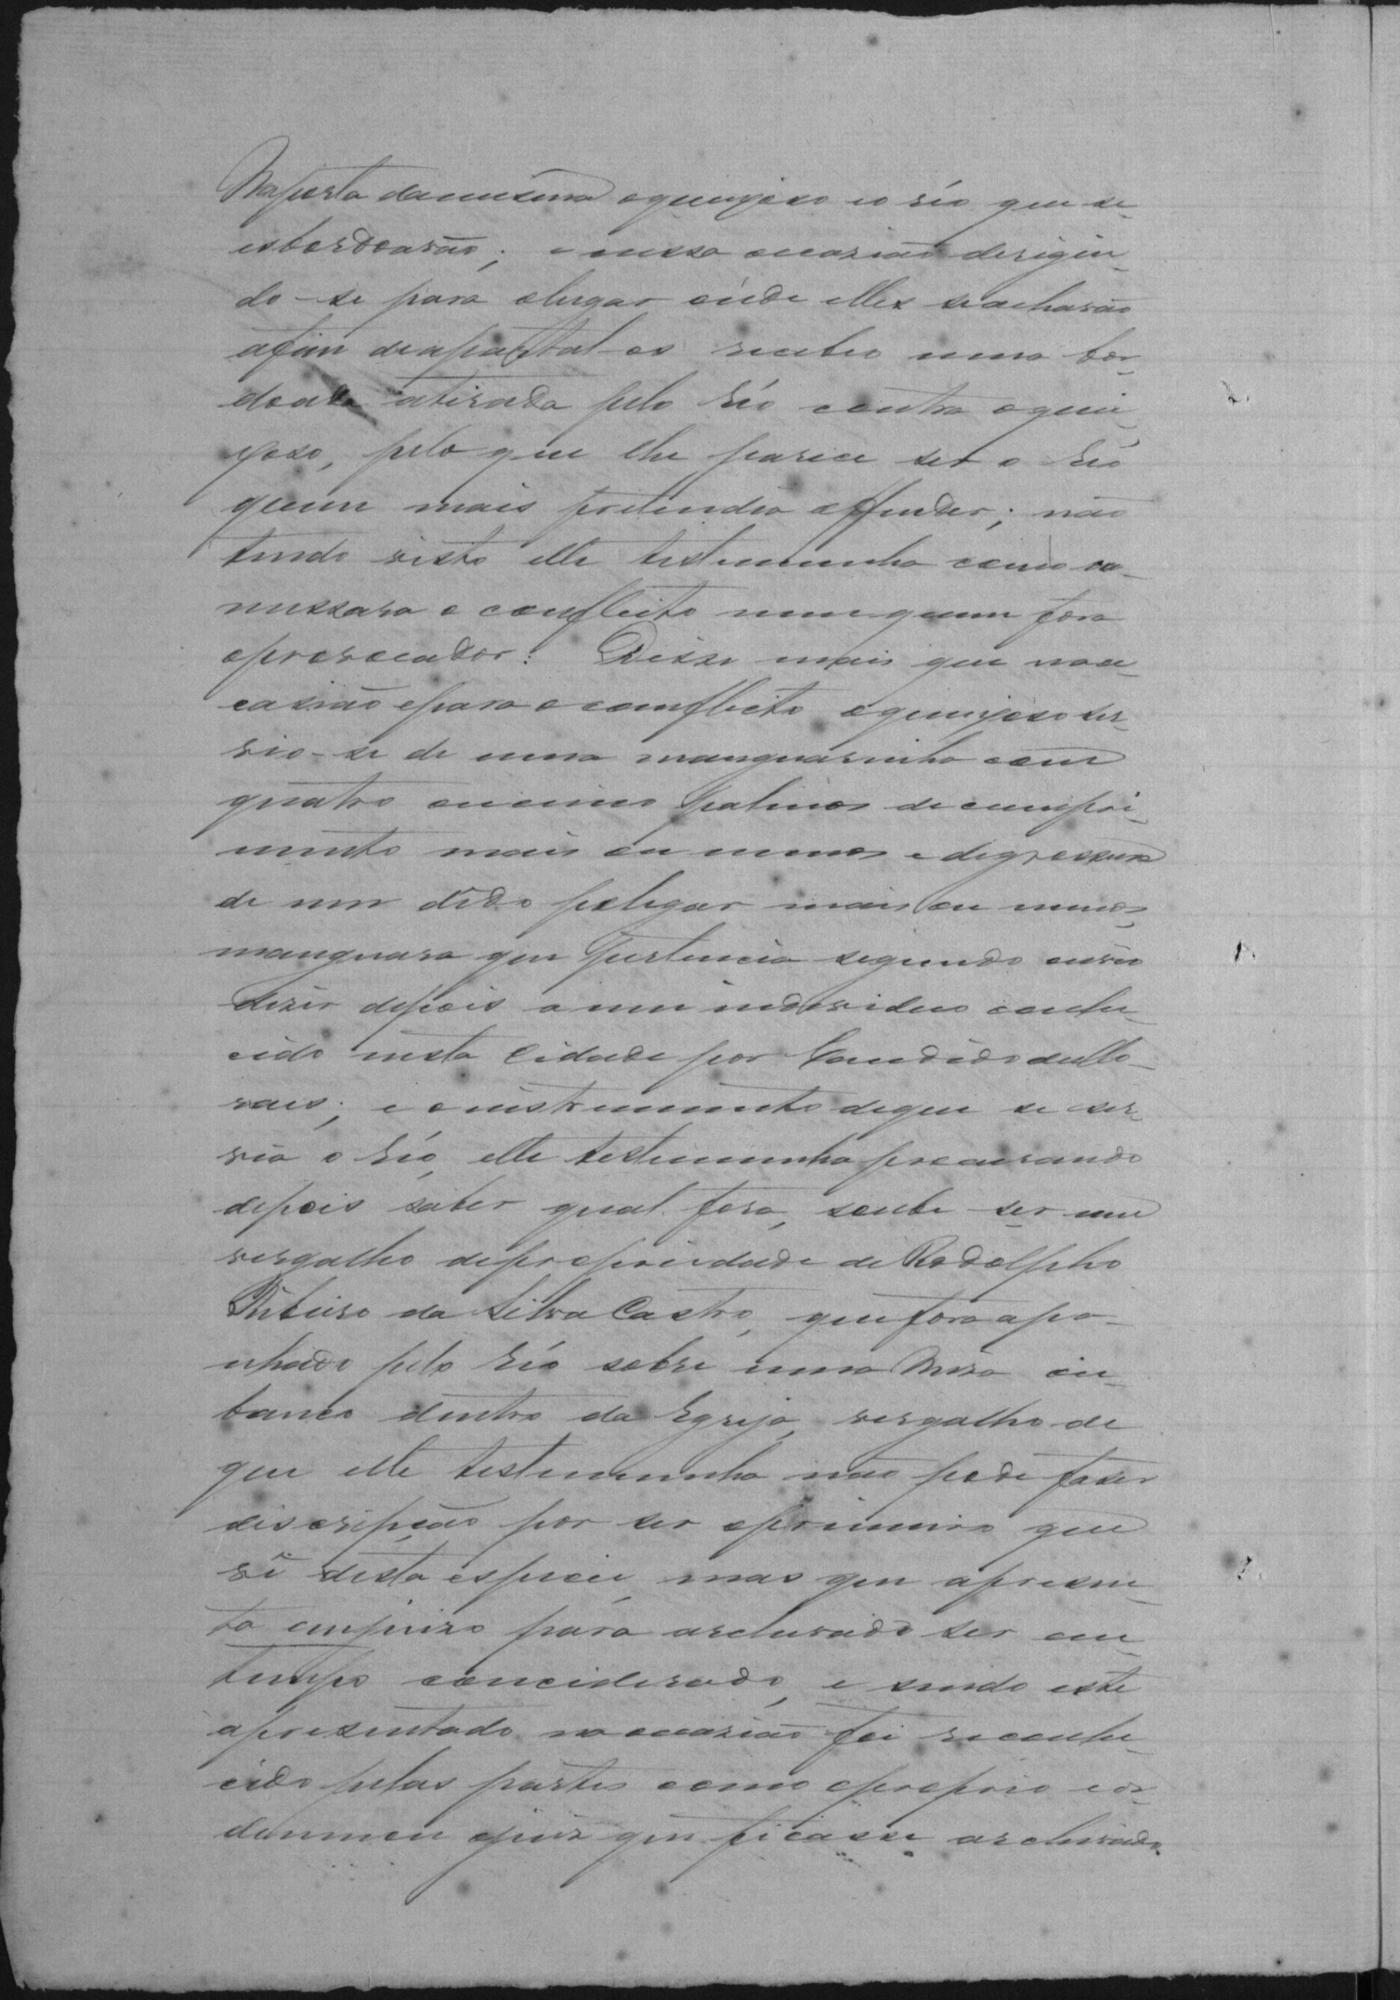 Na porta da mesma o queixoso e o réo que se
esbordoarão; e nessa occazião derigin-
do-se para o lugar onde elles se acharão
afim de apartal-os recebeo uma bor-
doada atirada pelo Réo contra o quei-
xoso, pelo que lhe parece ser o Réo
quem mais pretendia offender; não
tendo visto elle testemunha como co-
messara o conflicto nem quem fora
o provocador: Disse mais que na oc-
cazião e para o conflicto o queixoso ser-
vio-se de uma manguarinha com
quatro ou cinco palmos de compri-
mento mais ou menos e de grossura
de um dedo polegar mais ou menos,
manguara que pertencia segundo ouvio
dizer depois a um individuo conhe-
cido nesta Cidade por Candido de Mo-
raes; e o instrumento de que se ser-
via o Réo, elle testemunha procurando
depois saber qual fora, soube ser um
vergalho de propriedade de Rodolpho
Ribeiro da Silva Castro, que fora apa-
nhado pelo Réo sobre uma Meza ou
banco dentro da Egreja, vergalho de
que elle testemunha não pode fazer
discripção por ser o primeiro que
vê desta especie, mas que apresen-
ta em juizo para archivado ser em
tempo conciderado, e sendo este
apresentado na occazião foi reconhe-
cido pelas partes como o proprio e or-
denou o juiz que ficasse archivado